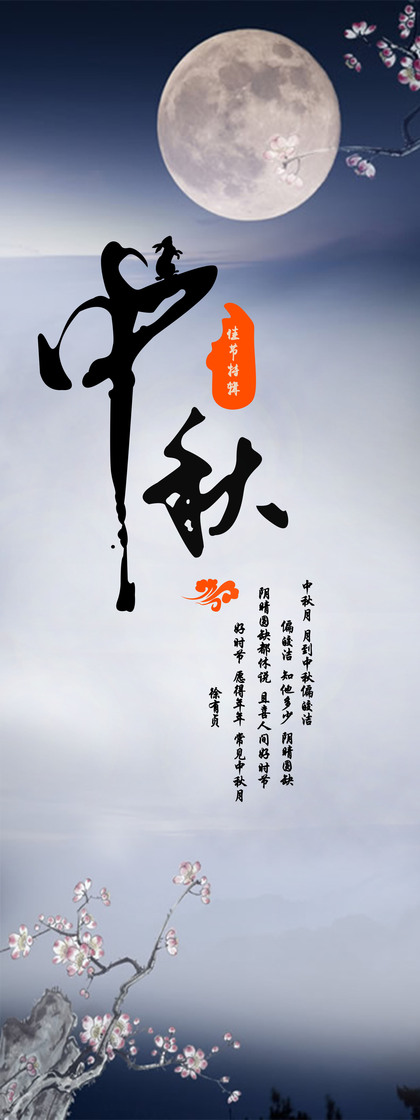 中秋
佳节特辑
中秋月 月到中秋偏皎洁
偏皎洁 知他多少 阴晴圆缺
阴晴圆缺都休说 且喜人间好时节
好时节 愿得年年 常见中秋月
徐有贞